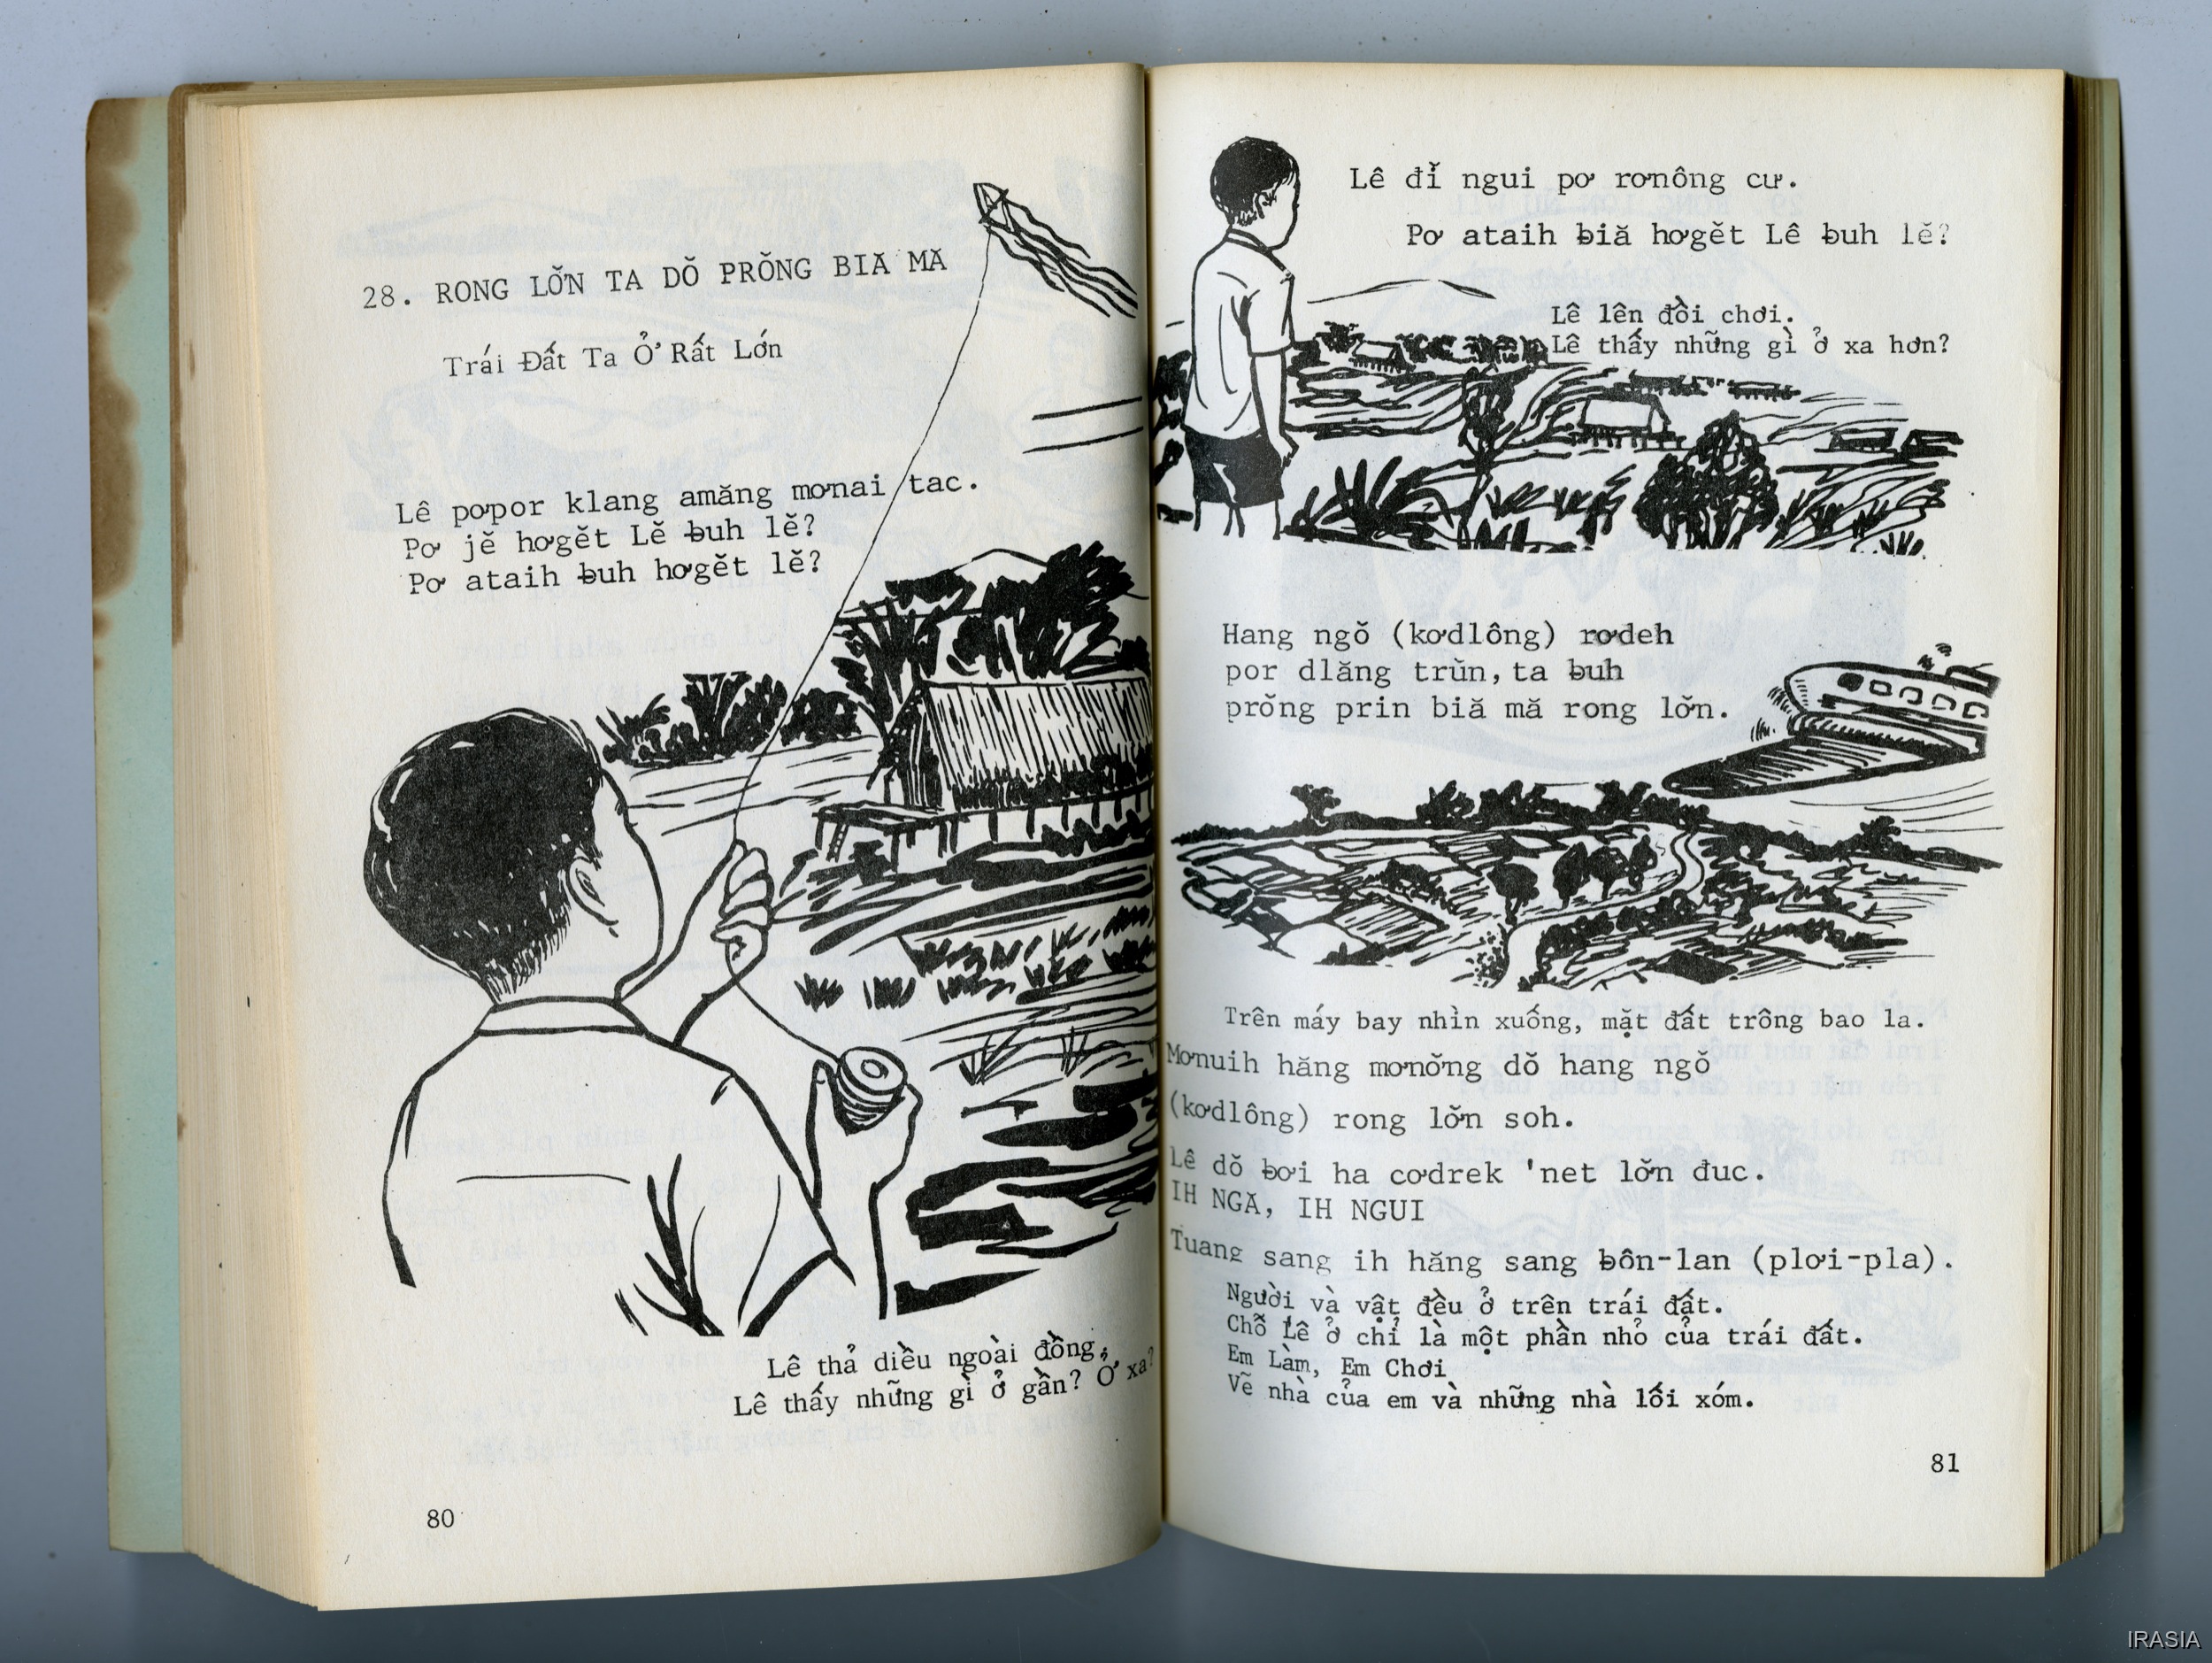 28. RONG LƠ̆N TA DŎ PRŎNG BIĂ MĂ
Trái Đất Ta Ở Rất Lớn
Lê pơpor klang amăng mơnai tac.
Pơ jĕ hơgĕt Lĕ ƀuh lĕ?
Pơ ataih ƀuh hơgĕt lĕ?
Lê thả diều ngoài đồng.
Lê thấy những gì ở gần? Ở xa?
80
Lê đĭ ngui pơ rơnông cư.
Pơ ataih ƀiă hơgĕt Lê ƀuh lĕ?
Lê lên đồi chơi.
Lê thấy những gì ở xa hơn?
Hang ngŏ (kơdlông) rơdeh
por dlăng trŭn, ta ƀuh
prŏng prin biă mă rong lơ̆n.
Trên máy bay nhìn xuống, mặt đất trông bao la.
Mơnuih hăng mơnơ̆ng dŏ hang ngŏ
(kơdlông) rong lơ̆n soh.
Lê dŏ ƀơi ha cơdrek 'net lơ̆n đuc.
IH NGĂ, IH NGUI
Tuang sang ih hăng sang ƀôn-lan (plơi-pla).
Người và vật đều ở trên trái đất.
Chỗ Lê ở chỉ là một phần nhỏ của trái đất.
Em Làm, Em Chơi
Vẽ nhà của em và những nhà lối xóm.
81
IRASIA